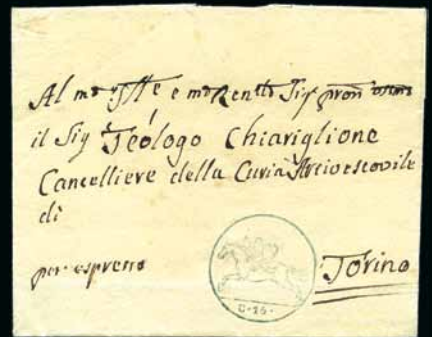 Al m.to Ill.re e m.to Rev.do Sig.r pron osmo
il Sig Teólogo Chiariglione
Cancelliere della Curia Arcivescovile
di
per espresso
Torino
C. 15.